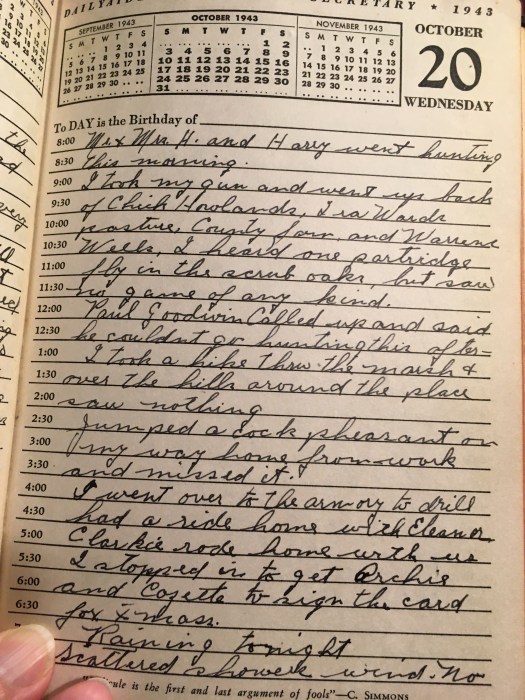 DAILYAIDE SECRETARY ★ 1943
SEPTEMBER 1943
S M T W T F S
. . . 1 2 3 4
5 6 7 8 9 10 11
12 13 14 15 16 17 18
19 20 21 22 23 24 25
26 27 28 29 30 . .
OCTOBER 1943
S M T W T F S
. . . . . 1 2
3 4 5 6 7 8 9
10 11 12 13 14 15 16
17 18 19 20 21 22 23
24 25 26 27 28 29 30
31
NOVEMBER 1943
S M T W T F S
. 1 2 3 4 5 6
7 8 9 10 11 12 13
14 15 16 17 18 19 20
21 22 23 24 25 26 27
28 29 30 . . . .
OCTOBER
20
WEDNESDAY
To DAY is the Birthday of
8:00 Mr & Mrs. H. and Harry went hunting
8:30 this morning.
9:00 I took my gun and went up back
9:30 of Chick Howlands, Ira Wards
10:00 pasture, County farm, and Warrens
10:30 Wells, I heard one partridge
11:00 fly in the scrub oaks, but saw
11:30 no game of any kind.
12:00 Paul Goodwin Called up and said
12:30 he couldnt go hunting this after-
1:00 I took a hike thru the marsh &
1:30 over the hills around the place
2:00 saw nothing
2:30 Jumped a cock pheasant on
3:00 my way home from work
3:30 and missed it.
4:00 I went over to the armory to drill
4:30 had a ride home with Eleanor
5:00 Clarkie rode home with us
5:30 I stopped in to get Archie
6:00 and Cozette to sign the card
6:30 for Xmass.
Raining tonight
scattered showers wind. No
is the first and last argument of fools"—C. SIMMONS